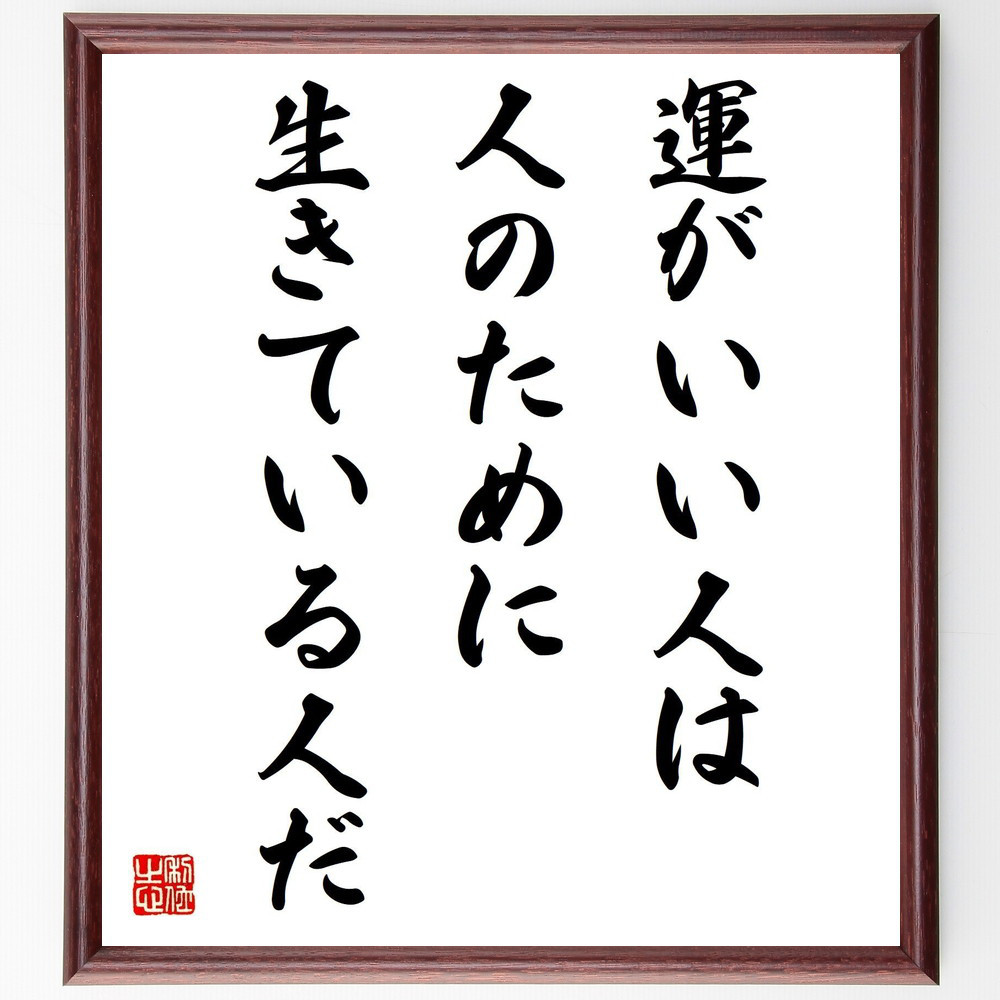 運がいい人は
人のために
生きている人だ